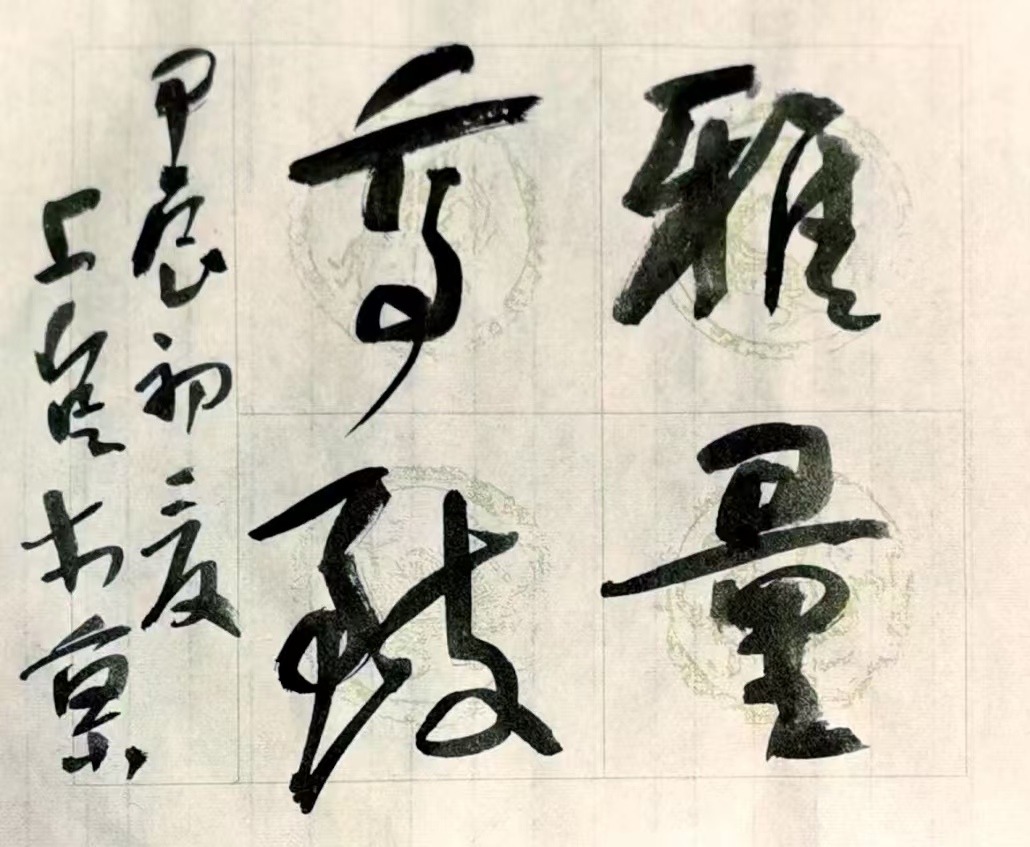 雅量
高致
甲辰初夏
上 书京